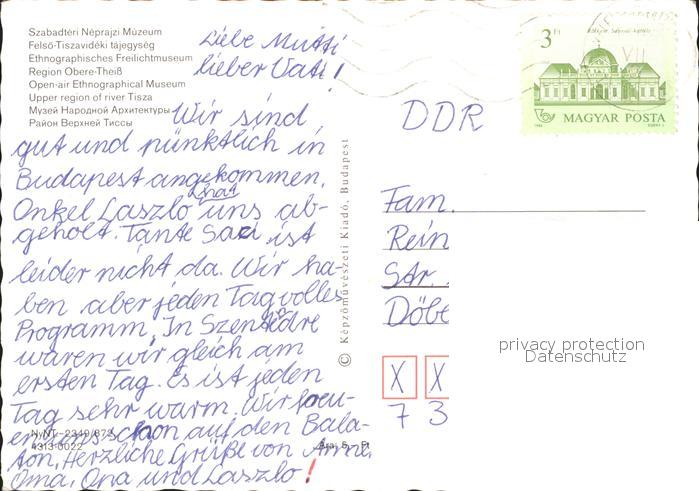 Szabadtéri Néprajzi Múzeum
Felső-Tiszavidéki tájegység
Ethnographisches Freilichtmuseum
Region Obere-Theiß
Open-air Ethnographical Museum
Upper region of river Tisza
Музей Народной Архитектуры
Район Верхней Тиссы
Liebe Mutti
lieber Vati!
Wir sind
gut und pünktlich in
Budapest angekommen.
Onkel Laszlo hat uns ab-
geholt. Tante Sari ist
leider nicht da. Wir ha-
ben aber jeden Tag volles
Programm. In Szentendre
waren wir gleich am
ersten Tag. Es ist jeden
Tag sehr warm. Wir freu-
en uns schon auf den Bala-
ton. Herzliche Grüße von Anne,
Oma, Opa und Laszlo!
4313-0022
© Képzőművészeti Kiadó, Budapest
3 Ft
MAGYAR POSTA
DDR
Fam.
Rein
Str.
Döbe
X X
7 3
privacy protection
Datenschutz